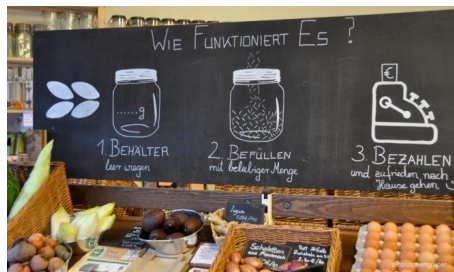 WIE FUNKTIONIERT ES ?
......g
€
1. BEHÄLTER
leer wiegen
2. BEFÜLLEN
mit beliebiger Menge
3. BEZAHLEN
und zufrieden nach
Hause gehen
Schalotten